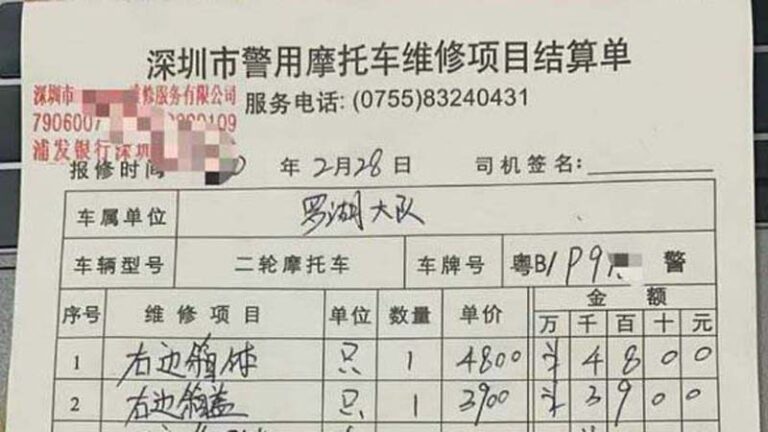 深圳市警用摩托车维修项目结算单
深圳市 维修服务有限公司 服务电话: (0755)83240431
7906007 109
浦发银行深圳
报修时间 年2月28日 司机签名:
车属单位 罗湖大队
车辆型号 二轮摩托车 车牌号 粤B/P9 警
序号 维修项目 单位 数量 单价 金额
万 千 百 十 元
1 右边箱体 只 1 4800 ¥ 4 8 0 0
2 右边箱盖 只 1 3900 ¥ 3 9 0 0